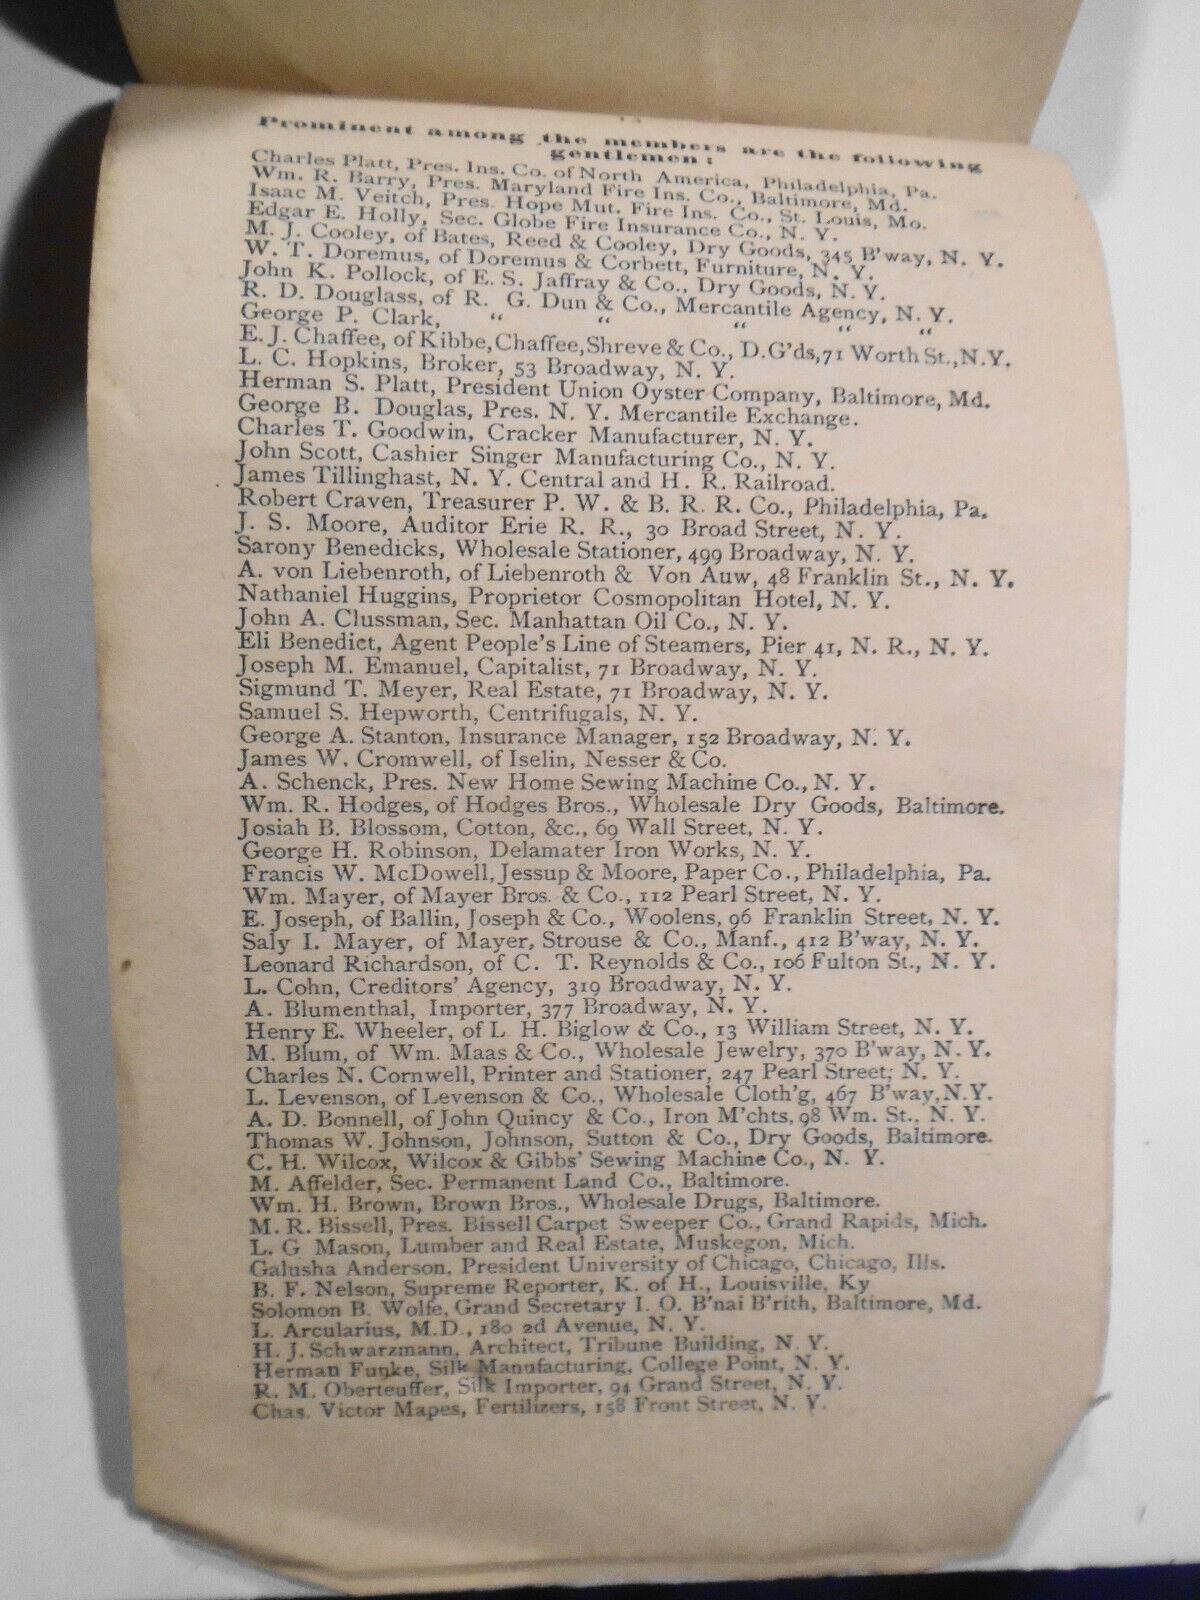 Prominent among the members are the following
gentlemen:
Charles Platt, Pres. Ins. Co. of North America, Philadelphia, Pa.
Wm. R. Barry, Pres. Maryland Fire Ins. Co., Baltimore, Md.
Isaac M. Veitch, Pres. Hope Mut. Fire Ins. Co., St. Louis, Mo.
Edgar E. Holly, Sec. Globe Fire Insurance Co., N. Y.
M. J. Cooley, of Bates, Reed & Cooley, Dry Goods, 345 B'way, N. Y.
W. T. Doremus, of Doremus & Corbett, Furniture, N. Y.
John K. Pollock, of E. S. Jaffray & Co., Dry Goods, N. Y.
R. D. Douglass, of R. G. Dun & Co., Mercantile Agency, N. Y.
George P. Clark, " " " " "
E. J. Chaffee, of Kibbe, Chaffee, Shreve & Co., D.G'ds, 71 Worth St., N.Y.
L. C. Hopkins, Broker, 53 Broadway, N. Y.
Herman S. Platt, President Union Oyster Company, Baltimore, Md.
George B. Douglas, Pres. N. Y. Mercantile Exchange.
Charles T. Goodwin, Cracker Manufacturer, N. Y.
John Scott, Cashier Singer Manufacturing Co., N. Y.
James Tillinghast, N. Y. Central and H. R. Railroad.
Robert Craven, Treasurer P. W. & B. R. R. Co., Philadelphia, Pa.
J. S. Moore, Auditor Erie R. R., 30 Broad Street, N. Y.
Sarony Benedicks, Wholesale Stationer, 499 Broadway, N. Y.
A. von Liebenroth, of Liebenroth & Von Auw, 48 Franklin St., N. Y.
Nathaniel Huggins, Proprietor Cosmopolitan Hotel, N. Y.
John A. Clussman, Sec. Manhattan Oil Co., N. Y.
Eli Benedict, Agent People's Line of Steamers, Pier 41, N. R., N. Y.
Joseph M. Emanuel, Capitalist, 71 Broadway, N. Y.
Sigmund T. Meyer, Real Estate, 71 Broadway, N. Y.
Samuel S. Hepworth, Centrifugals, N. Y.
George A. Stanton, Insurance Manager, 152 Broadway, N. Y.
James W. Cromwell, of Iselin, Nesser & Co.
A. Schenck, Pres. New Home Sewing Machine Co., N. Y.
Wm. R. Hodges, of Hodges Bros., Wholesale Dry Goods, Baltimore.
Josiah B. Blossom, Cotton, &c., 69 Wall Street, N. Y.
George H. Robinson, Delamater Iron Works, N. Y.
Francis W. McDowell, Jessup & Moore, Paper Co., Philadelphia, Pa.
Wm. Mayer, of Mayer Bros. & Co., 112 Pearl Street, N. Y.
E. Joseph, of Ballin, Joseph & Co., Woolens, 96 Franklin Street, N. Y.
Saly I. Mayer, of Mayer, Strouse & Co., Manf., 412 B'way, N. Y.
Leonard Richardson, of C. T. Reynolds & Co., 106 Fulton St., N. Y.
L. Cohn, Creditors' Agency, 319 Broadway, N. Y.
A. Blumenthal, Importer, 377 Broadway, N. Y.
Henry E. Wheeler, of L. H. Biglow & Co., 13 William Street, N. Y.
M. Blum, of Wm. Maas & Co., Wholesale Jewelry, 370 B'way, N. Y.
Charles N. Cornwell, Printer and Stationer, 247 Pearl Street, N. Y.
L. Levenson, of Levenson & Co., Wholesale Cloth'g, 467 B'way, N.Y.
A. D. Bonnell, of John Quincy & Co., Iron M'chts, 98 Wm. St., N. Y.
Thomas W. Johnson, Johnson, Sutton & Co., Dry Goods, Baltimore.
C. H. Wilcox, Wilcox & Gibbs' Sewing Machine Co., N. Y.
M. Affelder, Sec. Permanent Land Co., Baltimore.
Wm. H. Brown, Brown Bros., Wholesale Drugs, Baltimore.
M. R. Bissell, Pres. Bissell Carpet Sweeper Co., Grand Rapids, Mich.
L. G Mason, Lumber and Real Estate, Muskegon, Mich.
Galusha Anderson, President University of Chicago, Chicago, Ills.
B. F. Nelson, Supreme Reporter, K. of H., Louisville, Ky
Solomon B. Wolfe, Grand Secretary I. O. B'nai B'rith, Baltimore, Md.
L. Arcularius, M.D., 180 2d Avenue, N. Y.
H. J. Schwarzmann, Architect, Tribune Building, N. Y.
Herman Funke, Silk Manufacturing, College Point, N. Y.
R. M. Oberteuffer, Silk Importer, 94 Grand Street, N. Y.
Chas. Victor Mapes, Fertilizers, 158 Front Street, N. Y.